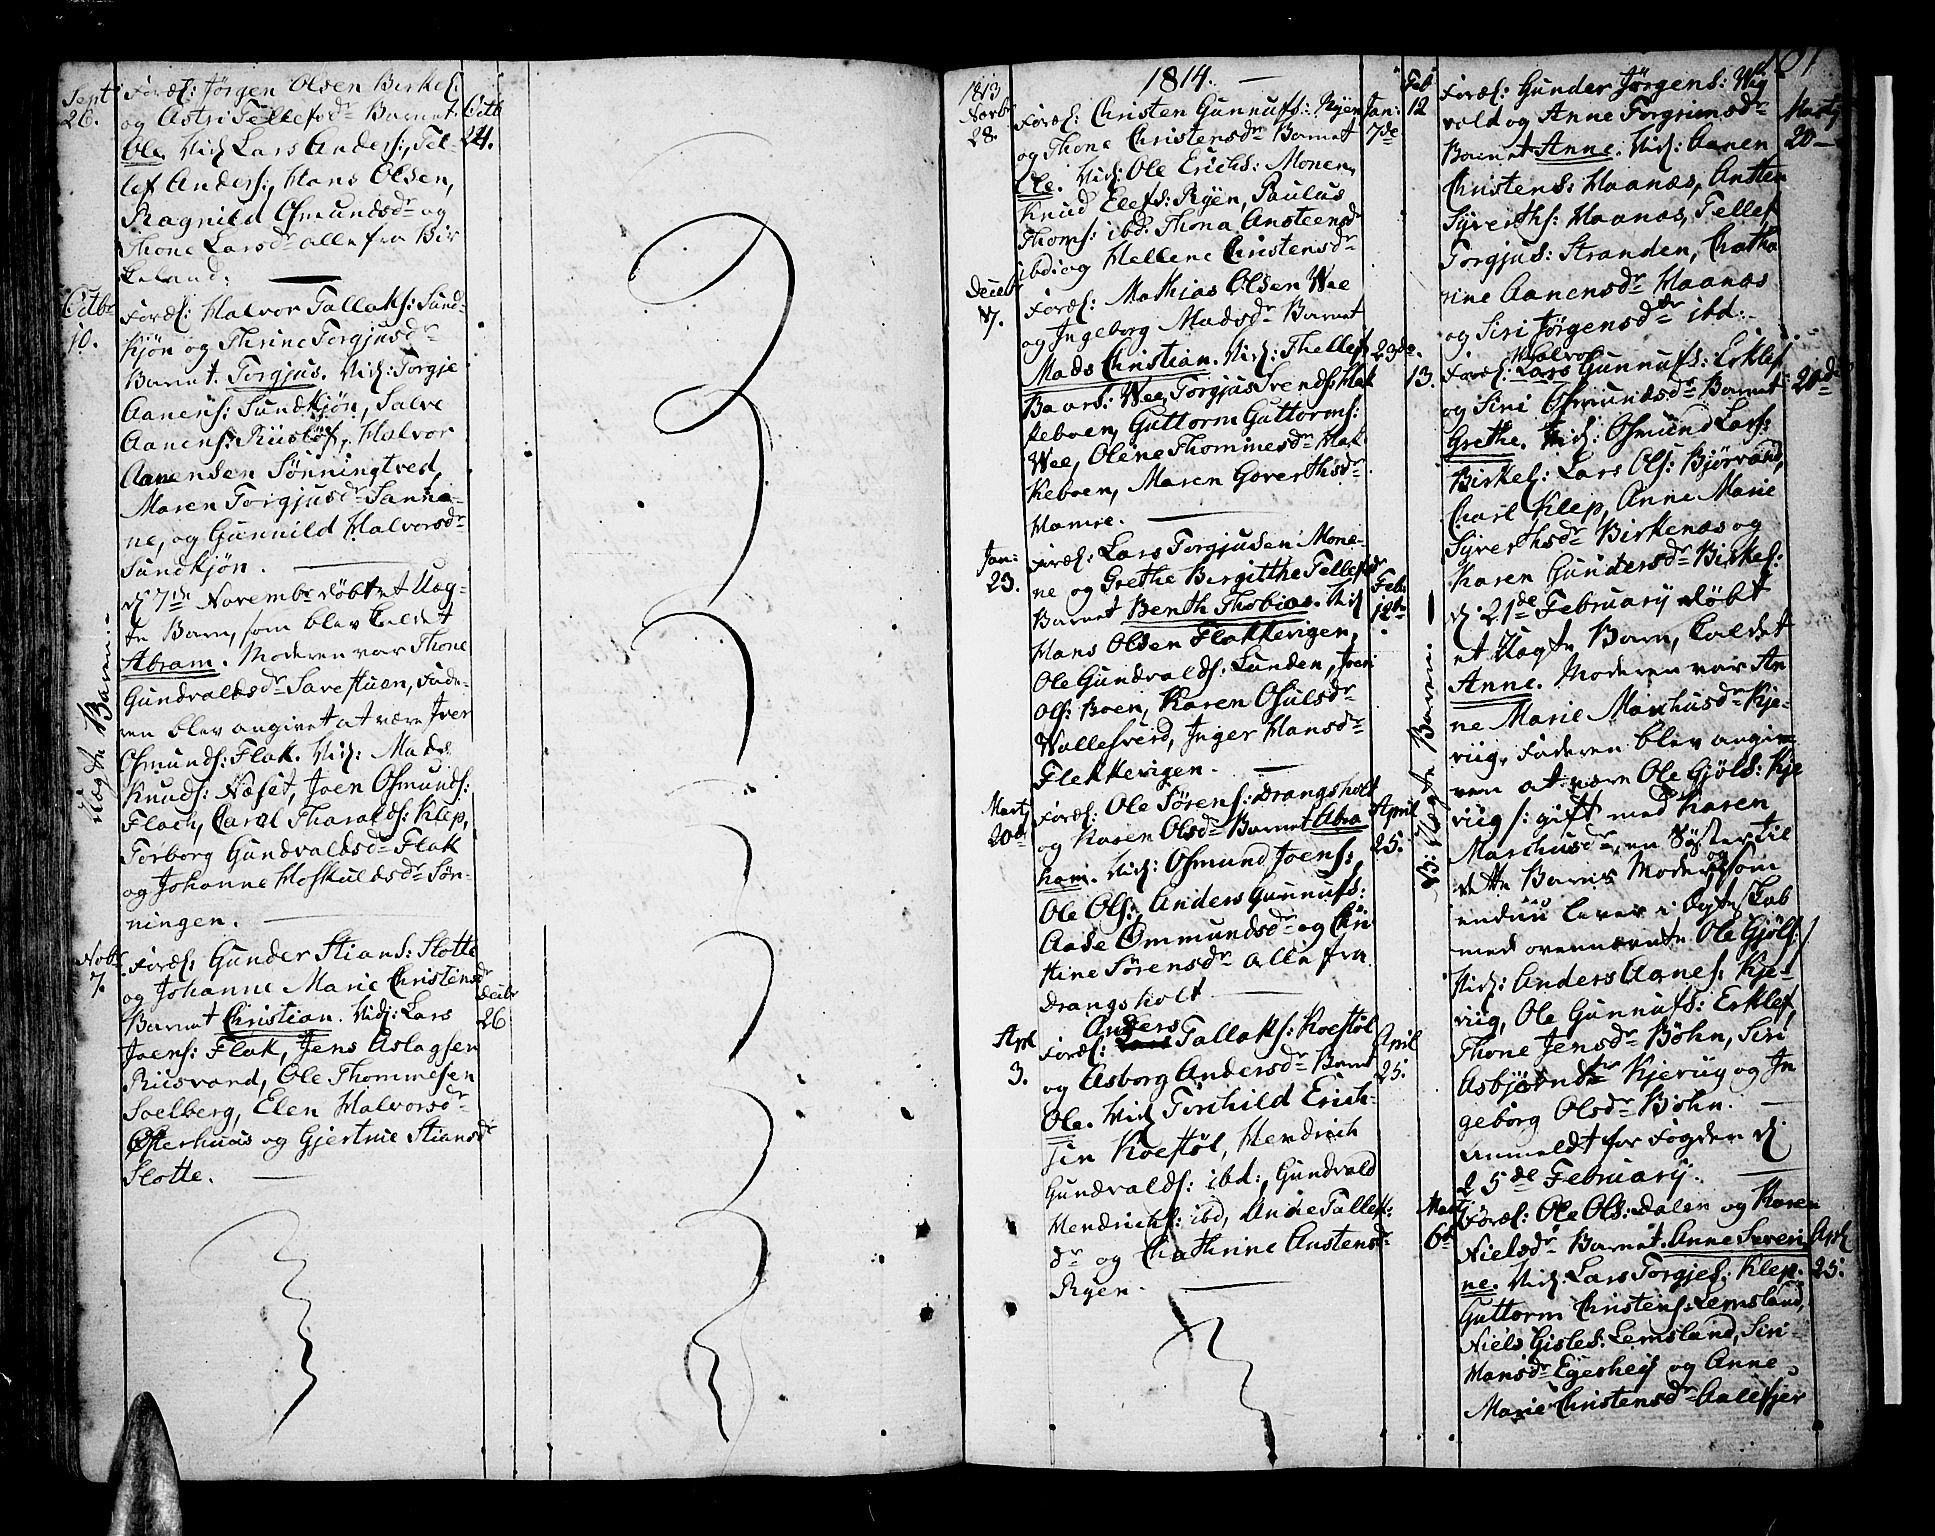 Sept
26.
Foræl: Jørgen Olsen Birkel:
og Astri Tellefsdr Barnet
Octb
24.
Ole. Vid: Lars Anders:, Tel-
lef Anders:, Hans Olsen,
Ragnild Osmundsdr og
Thone Larsdr alle fra Bir
keland:
Octbr
10.
Foræl: Halvor Tallaks: Sund-
kjøn og Thrine Torgjusdr
Barnet. Torgjus. Vid: Torgje
Aanens: Sundkjøn, Salve
Aanens: Riisløf, Halvor
Aanensen Sønningtved,
Maren Torgjusdr Sanna-
ne, og Gunnild Halvorsdr
Sundkjøn.
Uægte Barn:
d: 7de Novembr døbt et Uæg-
te Barn, som blev kaldet
Abram. Moderen var Thone
Gundvaldsdr Savestuen, Fade-
ren blev angivet at være Iver
Osmunds: Flak. Vid: Mads
Knuds: Næset, Joen Osmunds:
Flach, Carol Tharalds: Klep,
Torborg Gundvaldsdr Flak
og Johanne Hoskuldsdr Søn-
ningen.
Nobr
7.
Foræl: Gunder Stians: Slotte
og Johanne Marie Christensdr
Decbr
26
Barnet Christian. Vid: Lars
Joens: Flak, Jens Aslagsen
Riisvand, Ole Thommesen
Soelberg, Elen Halvorsdr
Østerhuus og Gjertrue Stiansdr
Slotte.
1814.
1813
Novbr
28.
Foræl: Christen Gunnufs: Ryen
og Thone Christensdr Barnet
Jan:
7de
Ole. Vid: Ole Erichs: Monen,
Knud Elefs: Ryen, Paulus
Thoms: ibd: Thona Ansteensdr
ibd: og Hellene Christensdr
Decbr
7.
Foræl: Mathias Olsen Wee
og Ingeborg Madsdr Barnet
Mads Christian. Vid: Thellef
23de.
Baars: Wee, Torgjus Svends: Hak
keboen, Guttorm Guttorms:
Wee, Oline Thommesdr Hak
keboen, Maren Goverthsdr
Hamre.
Jan:
23.
Foræl: Lars Torgjusen Mone-
ne og Grethe Birgitthe Tellefsdr
Feb:
12te
Barnet Benth Thobias. Vid
Hans Olsen Flakkevigen,
Ole Gundvalds: Lunden, Joen
Ols: Boen, Karen Osulsdr
Vallesverd, Inger Hansdr
Flekkevigen.
Marty
20de
Foræl: Ole Sørens: Drangsholt
og Karen Olsdr Barnet Abra
April
25.
ham. Vid: Osmund Joens:,
Ole Ols:, Anders Gunnufs:
Aase Ommundsdr og Chri
stine Sørensdr alle fra
Drangsholt
Apl
3.
Anders
Foræl: Lars Tallaks: Koestøl
og Asborg Andersdr Barnet
April
25.
Ole. Vid Torchild Erich-
sen Koestøl, Hendrich
Gundvalds: ibd:, Gundvald
Hendrichs: ibd, Anne Tallefs:
dr og Chathrine Austensdr
Ryen.
Feb
12
Foræl: Gunder Jørgens: Wig
vold og Anne Torgrimsdr
Marty
20
Barnet Anne. Vid: Aanen
Christens: Haanes, Ansten
Syverths: Haanas, Tellef
Torgjus: Stranden, Chatha
rine Aanensdr Haanas
og Siri Jørgensdr ibd:
13.
Halvor
Foræl: Lars Gunnufs: Erklef
og Siri Osmundsdr Barnet
20de
Grethe. Vid: Osmund Lars:
Birkel: Lars Ols: Bjørvand,
Charl Klep, Anne Marie
Syverthsdr Birkenæs og
Karen Gundersdr Birkel:
NB: Uægte Barn:
d: 21de February døbt
et Uægte Barn, kaldet
Anne. Moderen var An
ne Marie Marchusdr Kje-
viig, Faderen blev angi-
ven at være Ole Gjøls: Kje
viig /: gift med Karen
Marchusdr, en Søster til
dette Barns Moder og som
endnu lever i Ægteskab
med ovennævnte Ole Gjøls: /
Vid: Anders Aanes: Kje-
viig, Ole Gunnufs: Erklef,
Thone Jensdr Bøhn, Siri
Asbjørnsdr Kjeviig og In
geborg Olsdr Bøhn.
Anmeldt for Fogden d:
25de February.
Marty
6te
Foræl: Ole Ols: Dalen og Karen
Nielsdr Barnet. Anne Severi
Apl
25.
ne. Vid: Lars Torgjes: Klep.
Guttorm Christens: Lemsland,
Niels Gisles: Lemsland, Siri
Hansdr Egerheij og Anne
Marie Christensdr Aalefjer